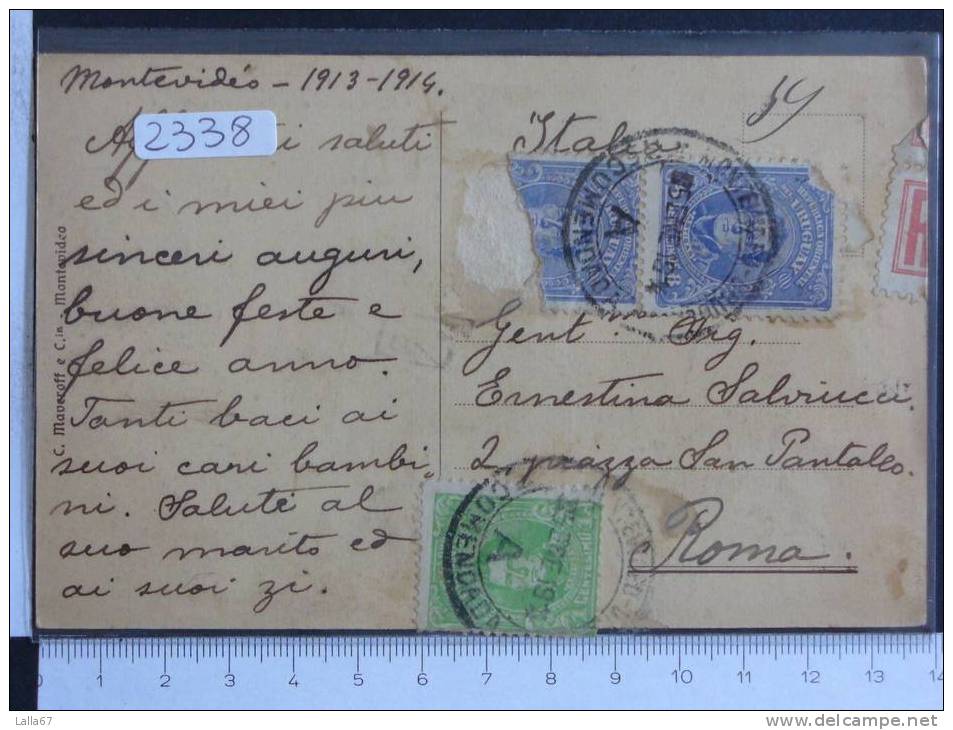 Montevidéo - 1913-1914.
2338
saluti
ed i miei piu
sinceri auguri,
buone feste e
felice anno.
Tanti baci ai
suoi cari bambi-
ni. Saluti al
suo marito ed
ai suoi zi.
C. Maveroff e C.ia - Montevideo
Italia
Gent.ma Sig.
Ernestina Salviucci.
2, piazza San Pantaleo.
Roma.
REPUBLICA ORIENTAL
URUGUAY
A
A
R
0 1 2 3 4 5 6 7 8 9 10 11 12 13 14
Lalla67
www.delcampe.net